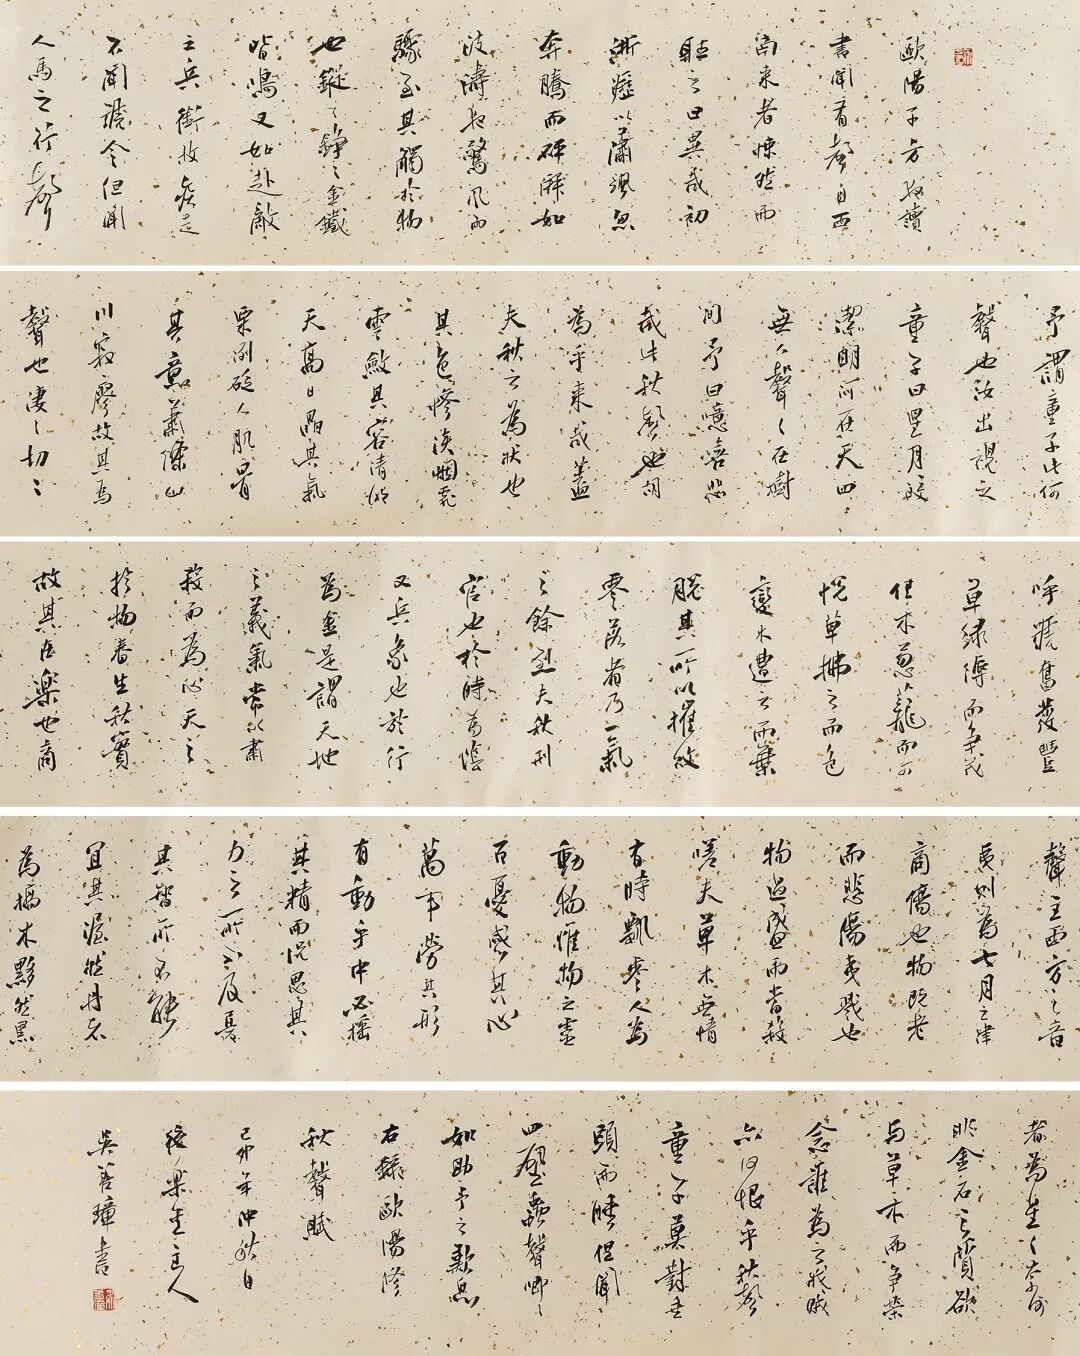 歐陽子方夜讀
書聞有聲自西
南來者悚然而
聽之曰異哉初
淅瀝以瀟颯忽
奔騰而砰湃如
波濤夜驚風雨
驟至其觸於物
也鏦々錚々金鐵
皆鳴又如赴敵
之兵銜枚疾走
不聞號令但聞
人馬之行聲
予謂童子此何
聲也汝出視之
童子曰星月皎
潔明河在天四
無人聲々在樹
間予曰噫嘻悲
哉此秋聲也胡
為乎來哉蓋
夫秋之為狀也
其色慘淡烟霏
雲斂其容清明
天高日晶其氣
栗冽砭人肌骨
其意蕭條山
川寂寥故其為
聲也淒々切々
呼號奮發豐
草綠縟而爭茂
佳木蔥蘢而可
悅草拂之而色
變木遭之而葉
脫其所以摧敗
零落者乃一氣
之餘烈夫秋刑
官也於時為陰
又兵象也於行
為金是謂天地
之義氣常以肅
殺而為心天之
於物春生秋實
故其在樂也商
聲主西方之音
夷則為七月之律
商傷也物既老
而悲傷夷戮也
物過盛而當殺
嗟夫草木無情
有時飄零人為
動物惟物之靈
百憂感其心
萬事勞其形
有動乎中必搖
其精而況思其
力之所不及憂
其智所不能
宜其渥然丹者
為槁木黟然黑
者為星々奈何
非金石之質欲
與草木而爭榮
念誰為之戕賊
亦何恨乎秋聲
童子莫對垂
頭而睡但聞
四壁蟲聲唧々
如助予之歎息
右錄歐陽修
秋聲賦
己卯年仲秋日
後樂堂主人
吳善璋書